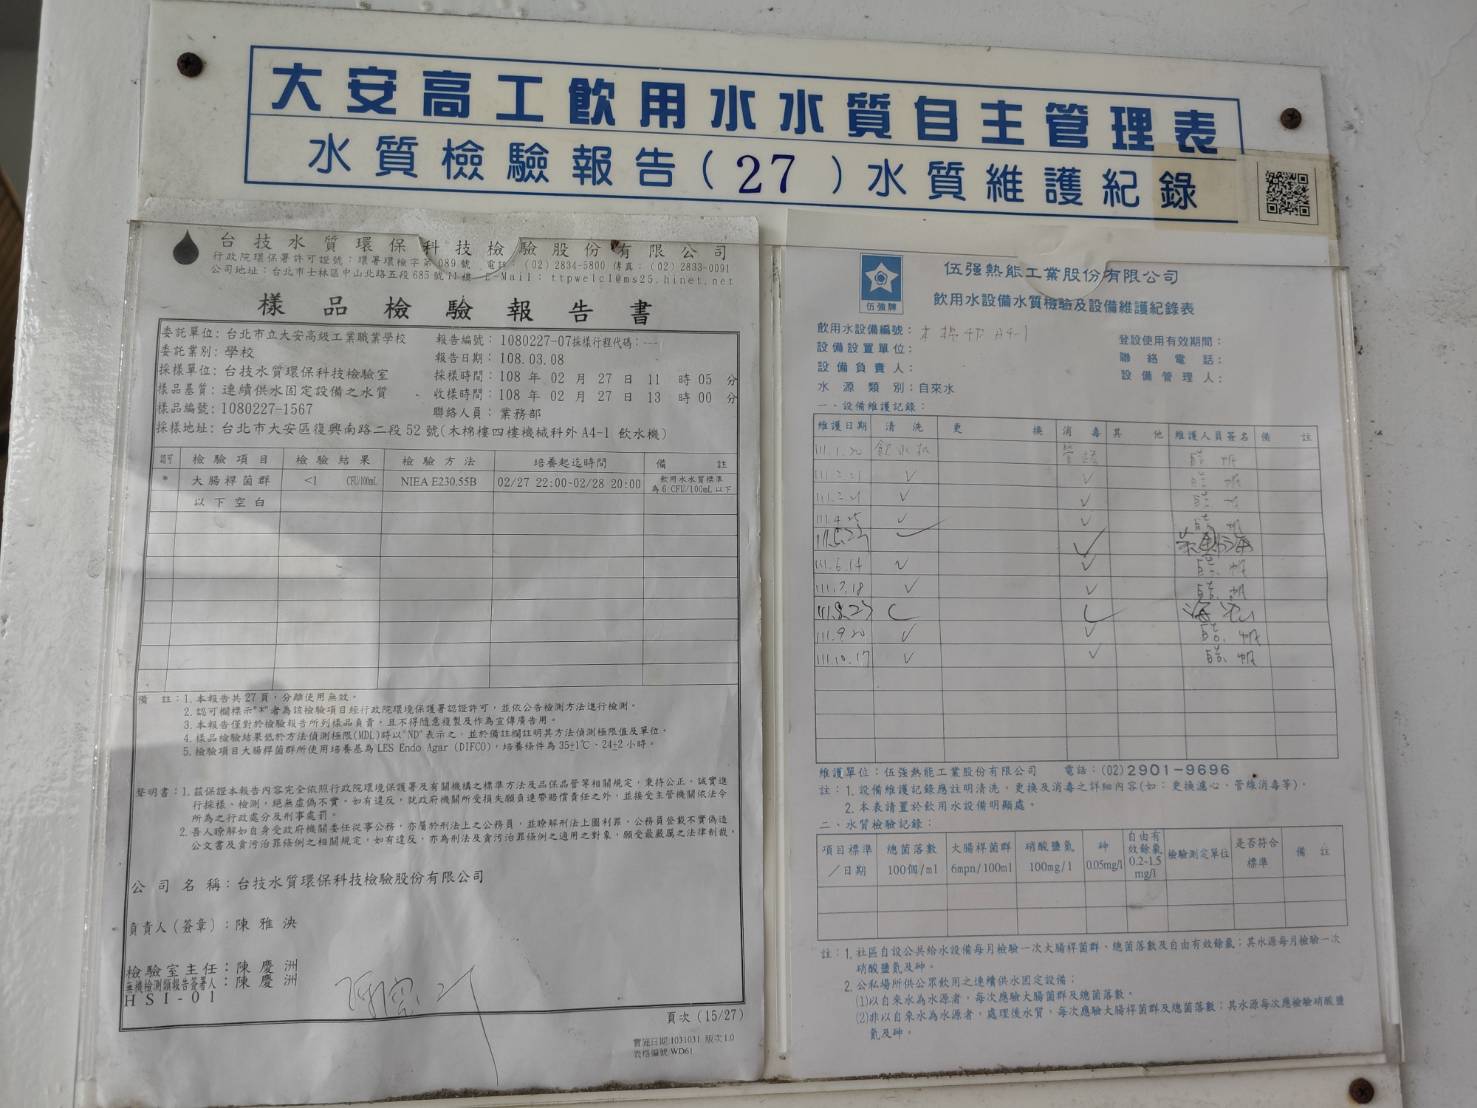 大安高工飲用水水質自主管理表
水質檢驗報告(27)水質維護紀錄
台技水質環保科技檢驗股份有限公司
行政院環保署許可證號:環署環檢字第089號 電話:(02)2834-5800 傳真:(02)2833-0091
公司地址:台北市士林區中山北路五段685號11樓 E-Mail: ttpwelcl@ms25.hinet.net
樣品檢驗報告書
委託單位:台北市立大安高級工業職業學校 報告編號:1080227-07採樣行程代碼:---
委託業別:學校 報告日期:108.03.08
採樣單位:台技水質環保科技檢驗室 採樣時間:108 年 02 月 27 日 11 時 05 分
樣品基質:連續供水固定設備之水質 收樣時間:108 年 02 月 27 日 13 時 00 分
樣品編號:1080227-1567 聯絡人員:業務部
採樣地址:台北市大安區復興南路二段52號(木棉樓四樓機械科外A4-1 飲水機)
認可 檢驗項目 檢驗結果 檢驗方法 培養起迄時間 備註
* 大腸桿菌群 <1 CFU/100mL NIEA E230.55B 02/27 22:00-02/28 20:00 飲用水水質標準
為6 CFU/100mL以下
以下空白
備 註:1.本報告共27頁,分離使用無效。
2.認可欄標示"*"者為該檢驗項目經行政院環境保護署認證許可,並依公告檢測方法進行檢測。
3.本報告僅對於檢驗報告所列樣品負責,且不得隨意複製及作為宣傳廣告用。
4.樣品檢驗結果低於方法偵測極限(MDL)時以"ND"表示之,並於備註欄註明其方法偵測極限值及單位。
5.檢驗項目大腸桿菌群所使用培養基為LES Endo Agar (DIFCO),培養條件為35±1℃,24±2小時。
聲明書:1.茲保證本報告內容完全依照行政院環境保護署及有關機構之標準方法及品保品管等相關規定,秉持公正,誠實進
行採樣、檢測。絕無虛偽不實,如有違反,就政府機關所受損失願負連帶賠償責任之外,並接受主管機關依法令
所為之行政處分及刑事處罰。
2.吾人瞭解如自身受政府機關委任從事公務,亦屬於刑法上之公務員,並瞭解刑法上圖利罪、公務員登載不實偽造
公文書及貪污治罪條例之相關規定,如有違反,亦為刑法及貪污治罪條例之適用之對象,願受最嚴厲之法律制裁。
公司名稱:台技水質環保科技檢驗股份有限公司
負責人(簽章):陳雅泱
檢驗室主任:陳慶洲
無機檢測類報告簽署人:陳慶洲
HSI-01
頁次(15/27)
實施日期:1031031 版次1.0
表格編號:WD61
伍強牌
伍强熱能工業股份有限公司
飲用水設備水質檢驗及設備維護紀錄表
飲用水設備編號:木棉4F A4-1
設備設置單位: 登設使用有效期間:
設備負責人: 聯絡電話:
水源類別:自來水 設備管理人:
一、設備維護記錄:
維護日期 清洗 更換 消毒 其他 維護人員簽名 備註
111.1.20 飲水机 管路
111.2.21 ✓ ✓
111.3.21 ✓ ✓
111.4.25 ✓ ✓
111.5.23 ✓ ✓
111.6.14 ✓ ✓
111.7.18 ✓ ✓
111.8.23 ✓ ✓
111.9.20 ✓ ✓
111.10.17 ✓ ✓
維護單位:伍强熱能工業股份有限公司 電話:(02)2901-9696
註:1.設備維護記錄應註明清洗、更換及消毒之詳細內容(如:更換濾心、管線消毒等)。
2.本表請置於飲水設備明顯處。
二、水質檢驗記錄:
項目標準/日期 總菌落數 100個/ml 大腸桿菌群 6mpn/100ml 硝酸鹽氮 100mg/l 砷 0.05mg/l 自由有效餘氯 0.2~1.5 mg/l 檢驗測定單位 是否符合標準 備註
註:1.社區自設公共給水設備每月檢驗一次大腸桿菌群、總菌落數及自由有效餘氯;其水源每月檢驗一次
硝酸鹽氮及砷。
2.公私場所供公眾飲用之連續供水固定設備:
(1)以自來水為水源者,每次應驗大腸菌群及總菌落數。
(2)非以自來水為水源者,處理後水質,每次應驗大腸桿菌群及總菌落數;其水源每次應檢驗硝酸鹽
氮及砷。